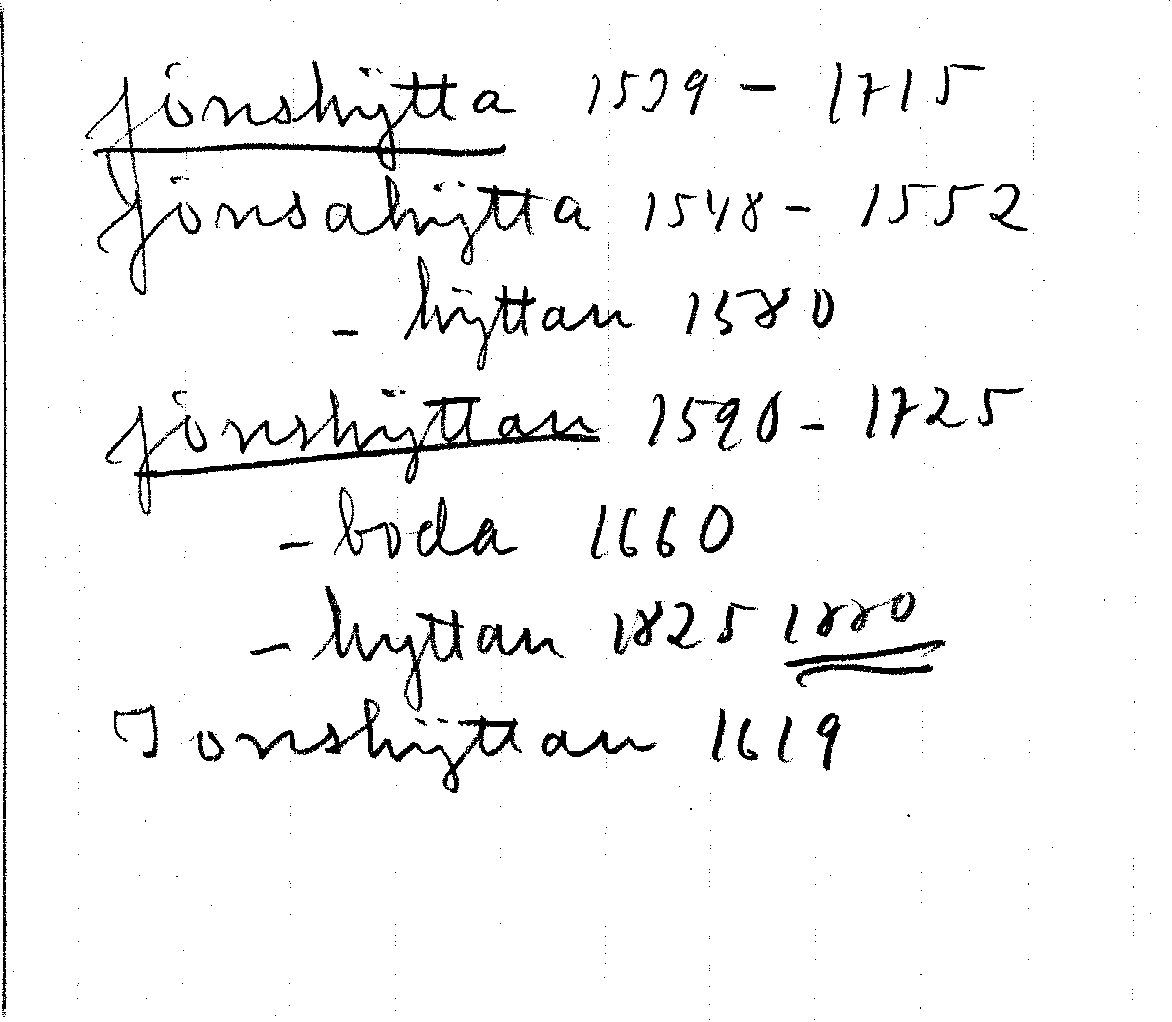 Jönshÿtta 1539 - 1715
Jönsahÿtta 1548 - 1552
- hÿttan 1580
Jönshÿttan 1590 - 1725
- boda 1660
- hyttan 1825 1880
Jonshÿttan 1619